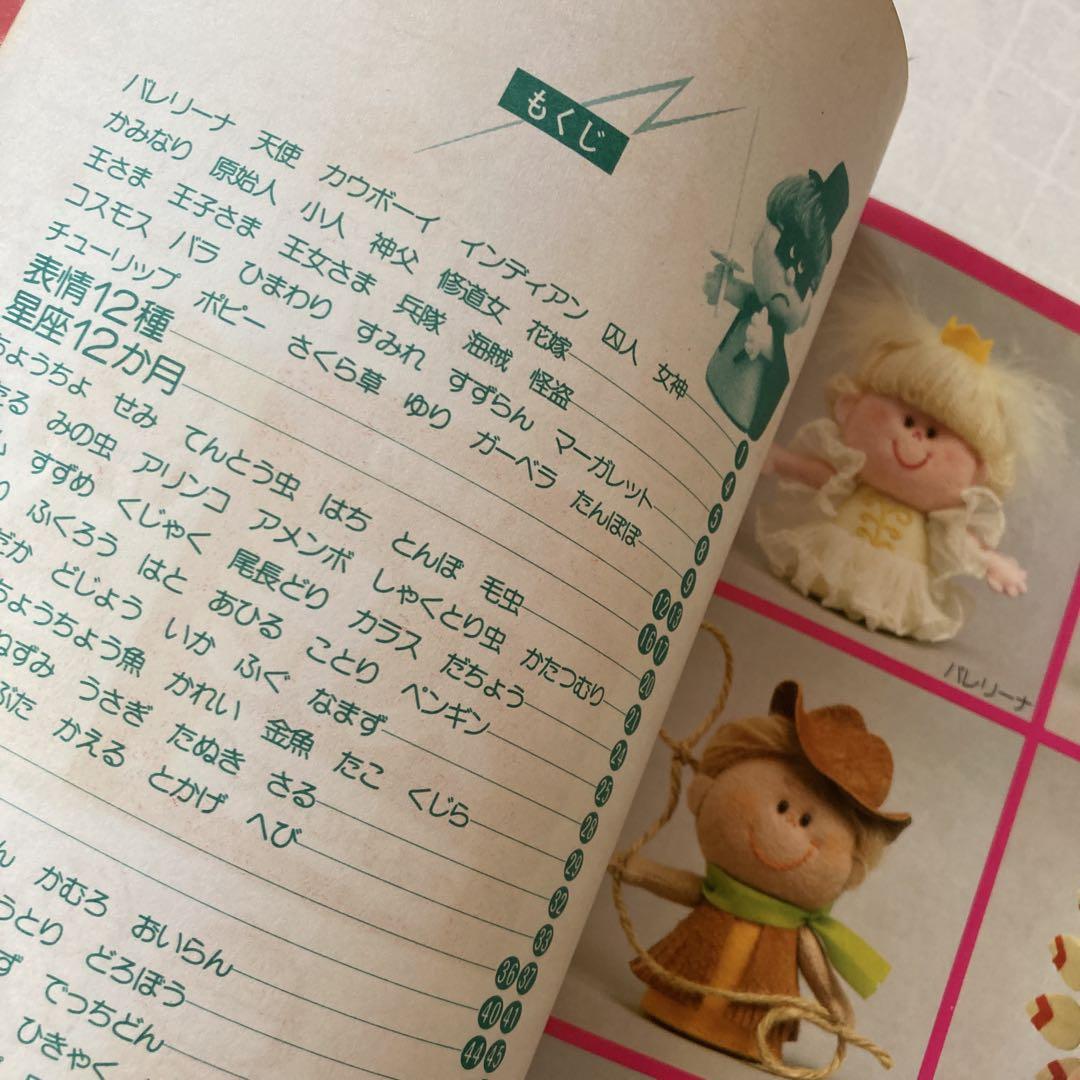 もくじ
バレリーナ 天使 カウボーイ インディアン 囚人 女神 1
かみなり 原始人 小人 神父 修道女 花嫁 4
王さま 王子さま 王女さま 兵隊 海賊 怪盗 5
コスモス バラ ひまわり すみれ すずらん マーガレット 8
チューリップ ポピー さくら草 ゆり ガーベラ たんぽぽ 9
表情12種 12 13
星座12か月 16 17
ちようちよ せみ てんとう虫 はち とんぼ 毛虫 20
みの虫 アリンコ アメンボ しゃくとり虫 かたつむり 21
すずめ くじゃく 尾長どり カラス だちょう 24
ふくろう はと あひる ことり ペンギン 25
どじょう いか ふぐ なまず 28
ちょうちょう魚 かれい 金魚 たこ くじら 29
ねずみ うさぎ たぬき さる 32
ぶた かえる とかげ へび 33
36 37
かむろ おいらん 40 41
どろぼう 44 45
でっちどん
ひきゃく
バレリーナ